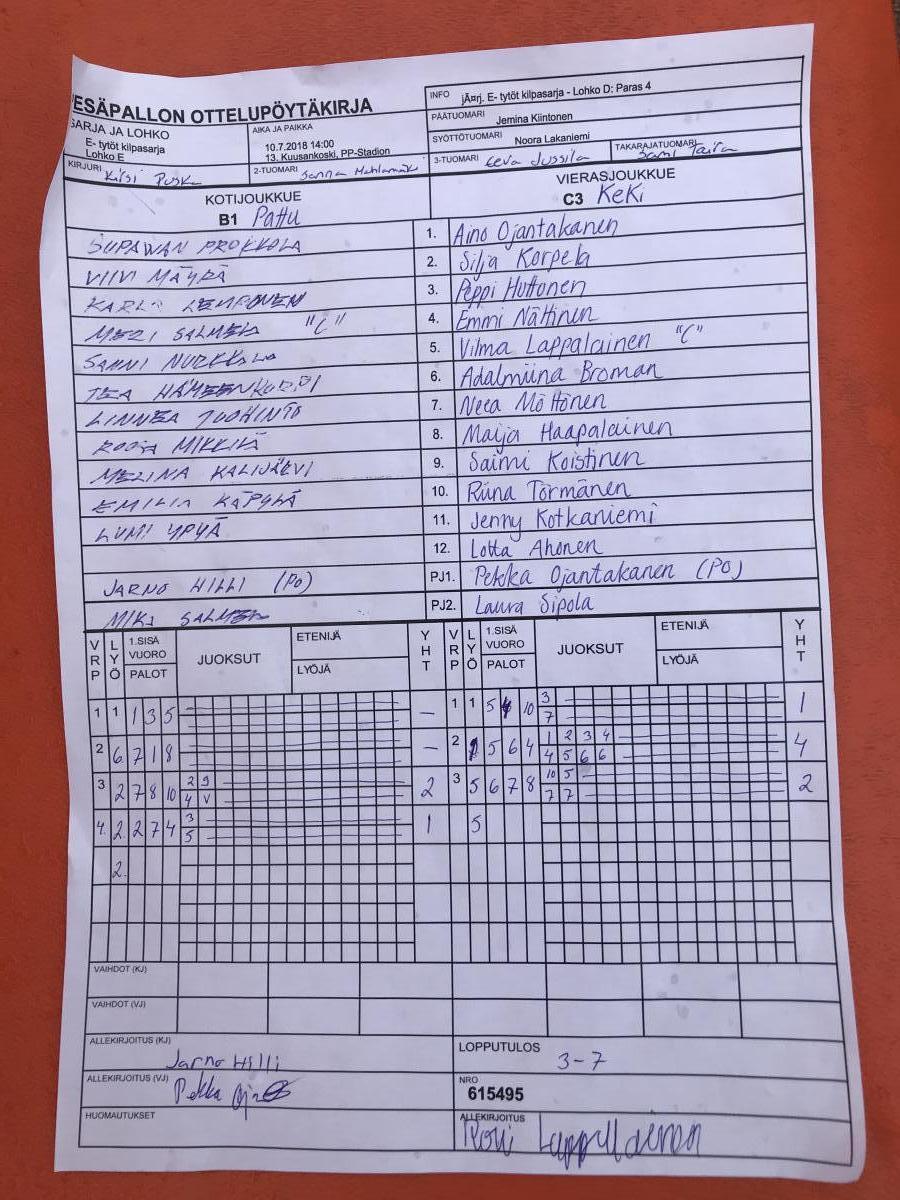 PESÄPALLON OTTELUPÖYTÄKIRJA
SARJA JA LOHKO
E- tytöt kilpasarja
Lohko E
AIKA JA PAIKKA
10.7.2018 14:00
13. Kuusankoski, PP-Stadion
INFO jÃ¤rj. E- tytöt kilpasarja - Lohko D: Paras 4
PÄÄTUOMARI Jemina Kiintonen
SYÖTTÖTUOMARI Noora Lakaniemi
KIRJURI Kirsi Puska
2-TUOMARI Sanna
3-TUOMARI Eeva Jussila
TAKARAJATUOMARI Sami
KOTIJOUKKUE
B1 Pattu
VIERASJOUKKUE
C3 KeKi
SUPAWAN PROKKOLA
1. Aino Ojantakanen
VIIVI MÄYRÄ
2. Silja Korpela
KARLA LEMPONEN
3. Peppi Huttonen
MERI SALMELA "C"
4. Emmi Nättinen
SANNI NURKKALA
5. Vilma Lappalainen "C"
TEA HÄMEENKORPI
6. Adalmiina Broman
LINNEA TUOHINTO
7. Neea Möttönen
ROOSA MIKKILÄ
8. Maija Haapalainen
MELINA KALIJÄRVI
9. Saimi Koistinen
EMILIA KÄPYLÄ
10. Riina Törmänen
LUMI YPYÄ
11. Jenny Kotkaniemi
12. Lotta Ahonen
JARNO HILLI (PO)
PJ1. Pekka Ojantakanen (PO)
MIKA SALMELA
PJ2. Laura Sipola
VRP LYÖ 1.SISÄ VUORO PALOT JUOKSUT ETENIJÄ LYÖJÄ YHT
VRP LYÖ 1.SISÄ VUORO PALOT JUOKSUT ETENIJÄ LYÖJÄ YHT
1 1 1 3 5 —
1 1 5 10 3 7 1
2 6 7 1 8 —
2 5 6 4 1 2 3 4 4 5 6 6 4
3 2 7 8 10 2 9 4 V 2
3 5 6 7 8 10 5 7 7 2
4. 2 2 7 4 3 5 1
5
2.
VAIHDOT (KJ)
VAIHDOT (VJ)
ALLEKIRJOITUS (KJ) Jarno Hilli
LOPPUTULOS 3-7
ALLEKIRJOITUS (VJ) Pekka
NRO
615495
HUOMAUTUKSET
ALLEKIRJOITUS